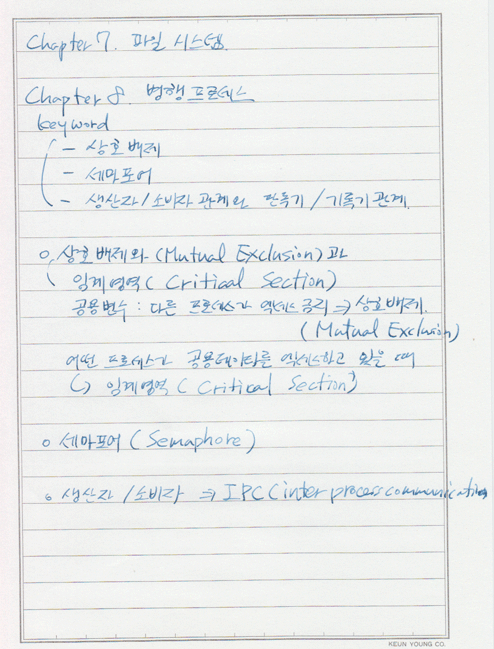 Chapter 7. 파일 시스템
Chapter 8. 병행 프로세스
keyword
- 상호배제
- 세마포어
- 생산자/소비자 관계와 판독기/기록기 관계
o 상호배제와 (Mutual Exclusion)과
임계영역 (Critical Section)
공용변수 : 다른 프로세스가 액세스 금지 ⇒ 상호배제.
(Mutual Exclusion)
어떤 프로세스가 공용데이타를 액세스하고 있을 때
↳ 임계영역 (Critical Section)
o 세마포어 (Semaphore)
o 생산자/소비자 ⇒ IPC (inter process communication
KEUN YOUNG CO.